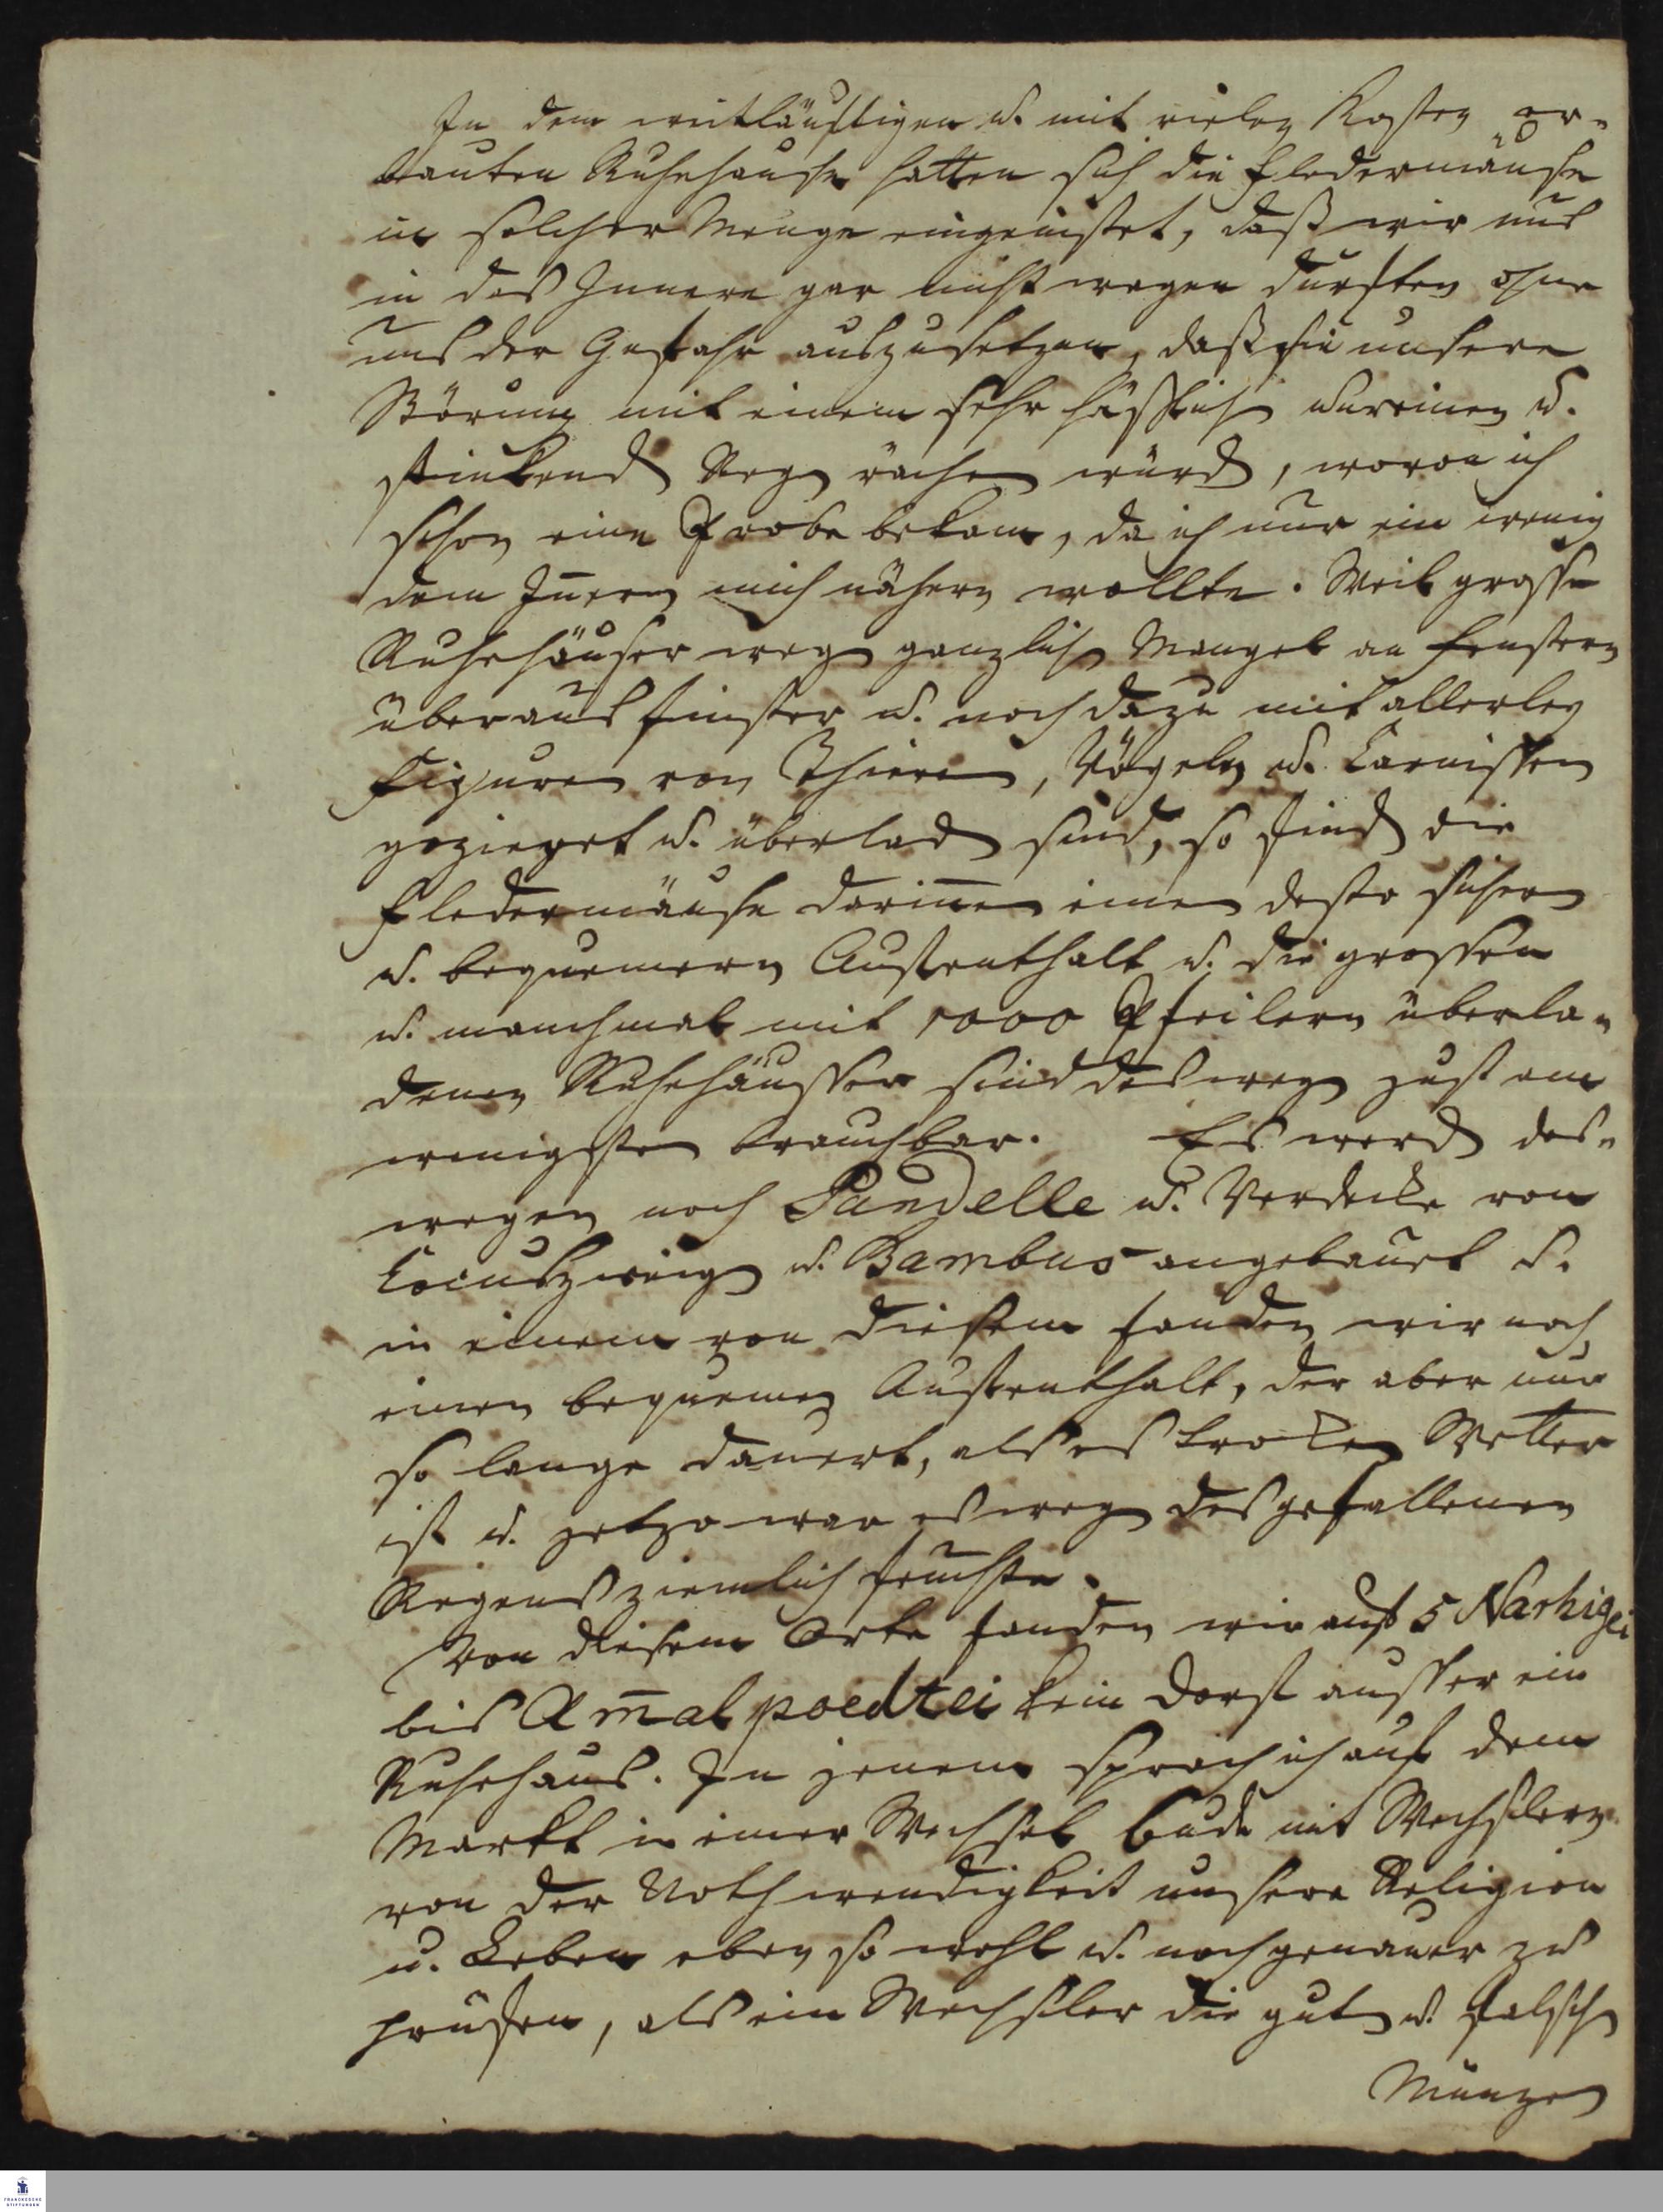 In dem weitläuftigen u. mit vielen Kosten er-
bauten Ruhehause hatten sich die Fledermäuse
in solcher Menge eingenistet, daß wir uns
in das Innere gar nicht wagen durften ohne
uns der Gefahr auszusetzen, daß sie unsere
Störung mit einem sehr häßlich unreinen u.
stinkend Reg rächen würd, wovon ich
schon eine Probe bekam, da ich nur ein wenig
dem Iñern mich nähern wollte. Weil grosse
Ruhehäuser weg gänzlich Mangel an Fenstern
überaus finster u. noch dazu mit allerley
Figuren von Thieren, Vögeln u. Carnissen
gezieret u. überlad sind, so find die
Fledermäuse darin̄en einen desto sichern
u. bequemern Auffenthalt u. die grossen
u. manchmal mit 1000 Pfeilern überla-
denen Ruhehäusser sind desweg just am
wenigsten brauchbar. Es werd des-
wegen noch Pandelle u. Verdecke von
Cocuszweig u. Bambus angebauet u.
in einem von diesem fanden wir noch
einen bequemen Auffenthalt, der aber nur
so lange dauert, als es trocken Wetter
ist u. jetzo war es weg des gefallenen
Regens ziemlich feuchte.
Von diesem Orte fanden wir auf 5 Narhigei
bis Am̄alpoedtei kein Dorf ausser ein
Ruhehaus. In jenem sprach ich auf dem
Markt in einer Wechsel bude mit Wechslern
von der Nothwendigkeit unsere Religion
u. Leben eben so wohl u. noch genauer zu
prüfen, als ein Wechsler die gut u. falsch
Münzen
FRANCKESCHE
STIFTUNGEN